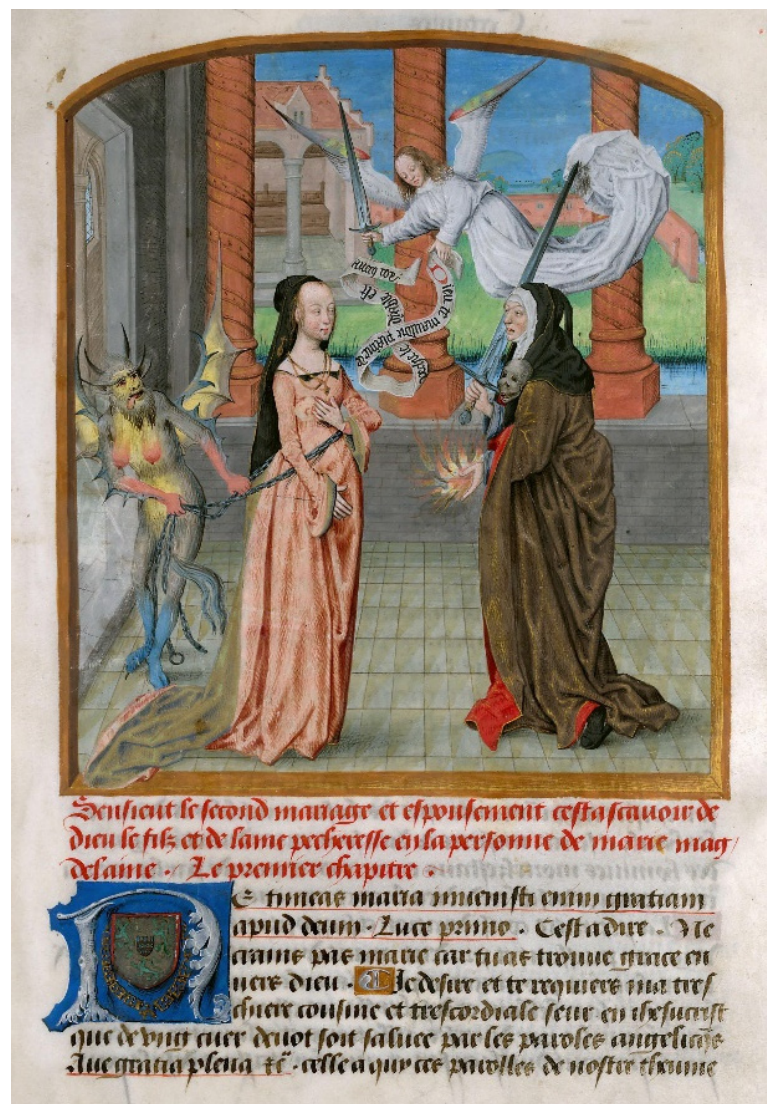 Dieu te mauldie
Sensieut le second mariage et espousement cestascavoir de
dieu le filz et de lame pecheresse en la personne de marie mag
delaine . Le premier chapitre .
Ne timeas maria invenisti enim gratiam
apud deum . Luce primo . Cest a dire . Ne
crains pas marie car tu as trouve grace en
uers dieu . Je desire et te requiers ma tres
chiere cousine et trescordiale seur en ihesucrist
que de ung cuer devot soit saluee par les paroles angeliqs
Ave gratia plena &c . celle a qui ces parolles de nostre theume